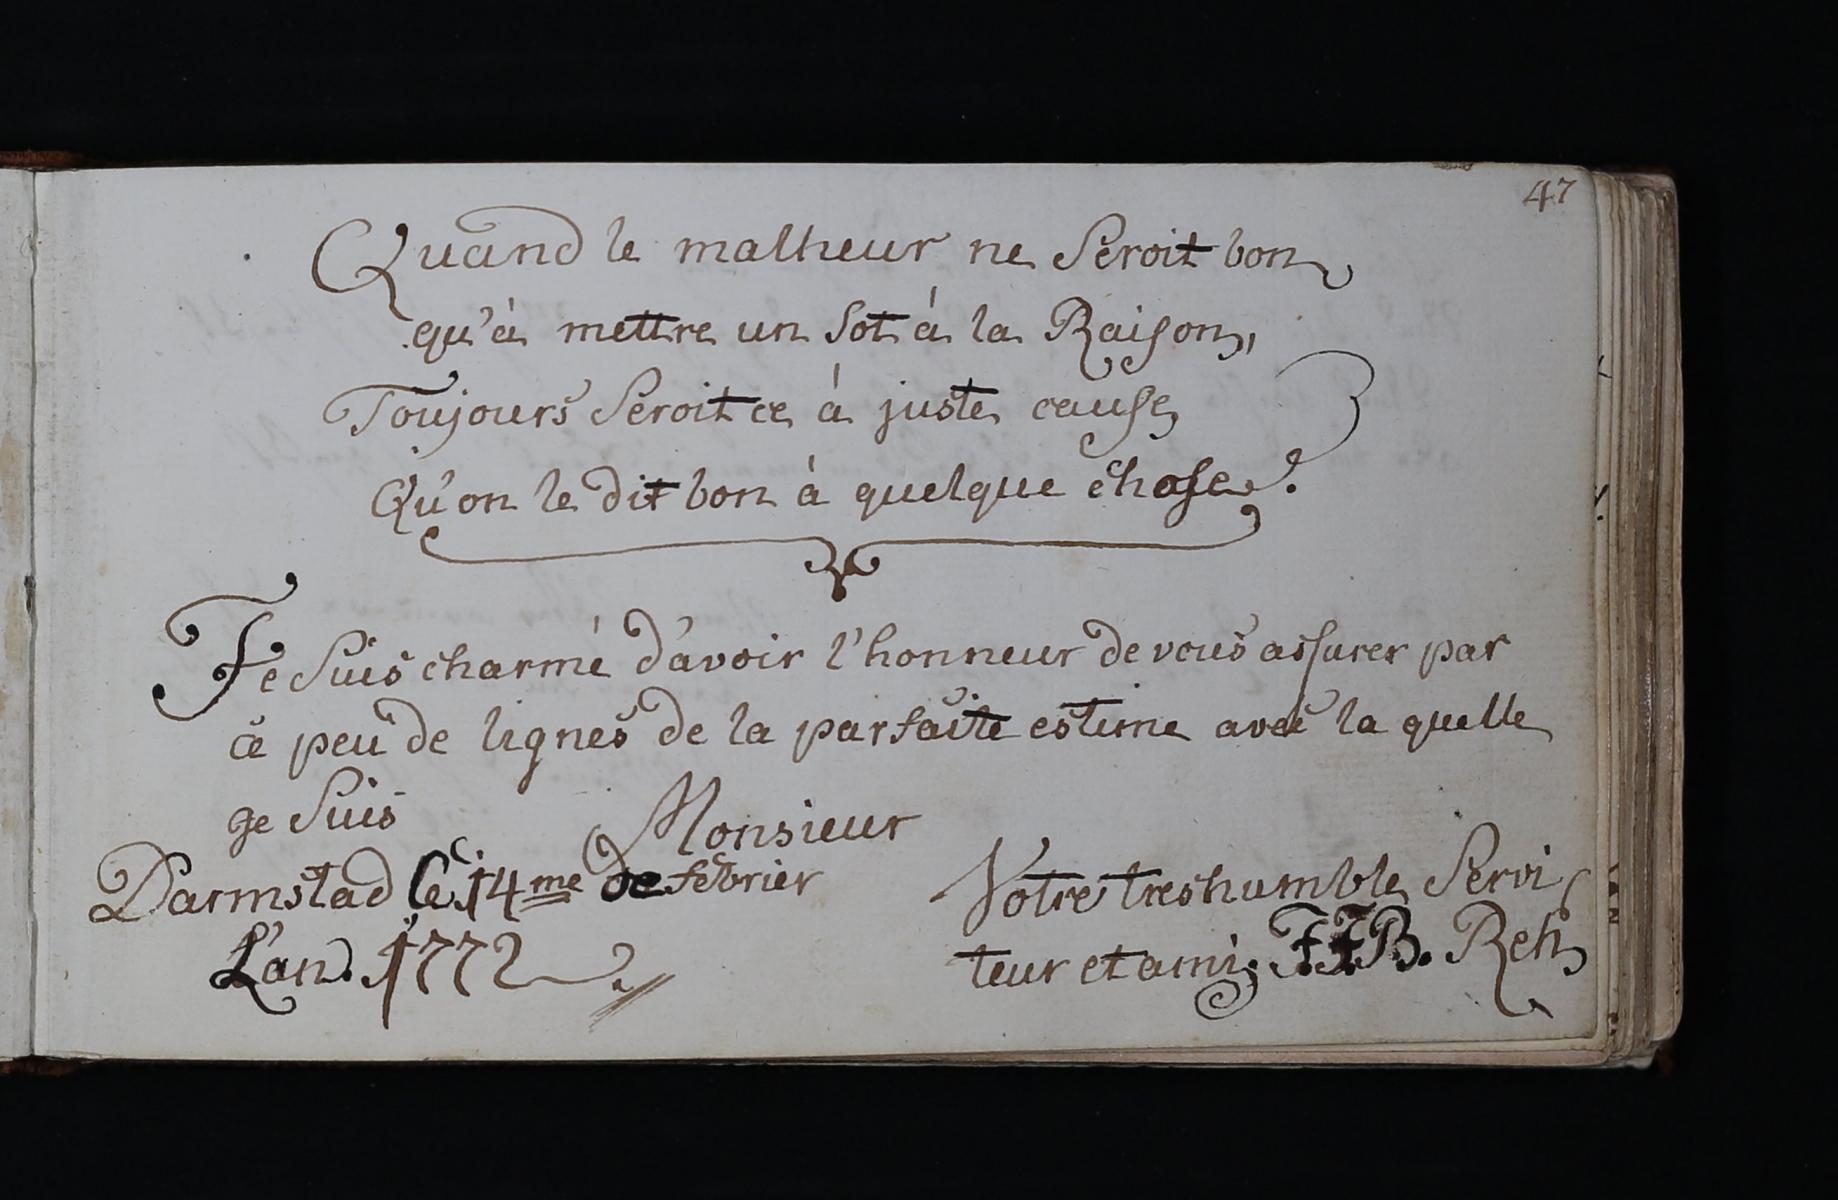 47
Quand le malheur ne Seroit bon
qu'à mettre un Sot á la Raison,
Toujours Seroit ce á juste cause
Qu'on le dit bon á quelque chose.
Je Suis charmé d'avoir l'honneur de vous assurer par
ce peu de lignes de la parfaite estime avec la quelle
je Suis
Monsieur
Darmstad le 14me de febrier
L'an. 1772
Votre tres humble Servi
teur et ami; J.F.B. Reh